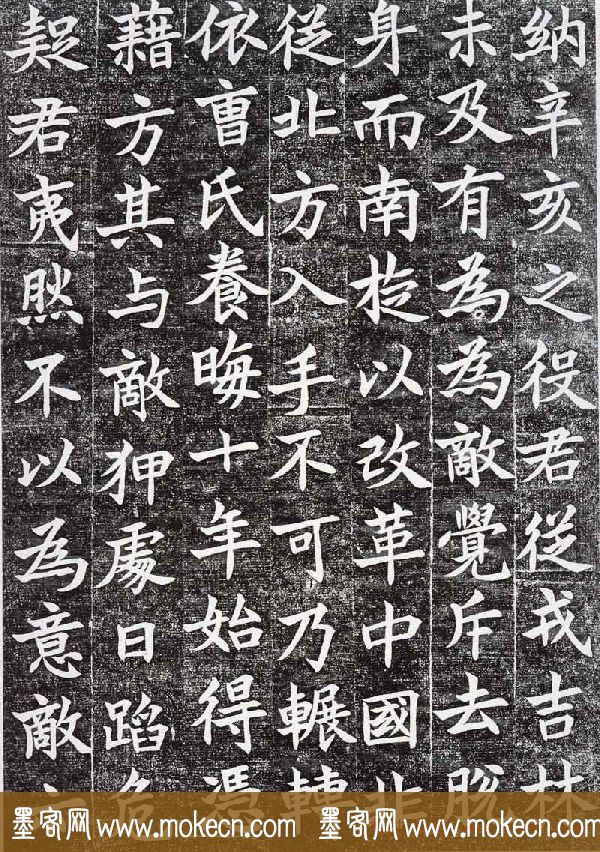 納辛亥之役君從戎吉林
未及有為為敵覺斥去脫
身而南從以改革中國非
從北方入手不可乃輾轉
依曹氏養晦十年始得憑
藉方其與敵狎處日蹈危
君夷然不以為意敵
墨客网 www.mokecn.com 墨客网 www.mokecn.com